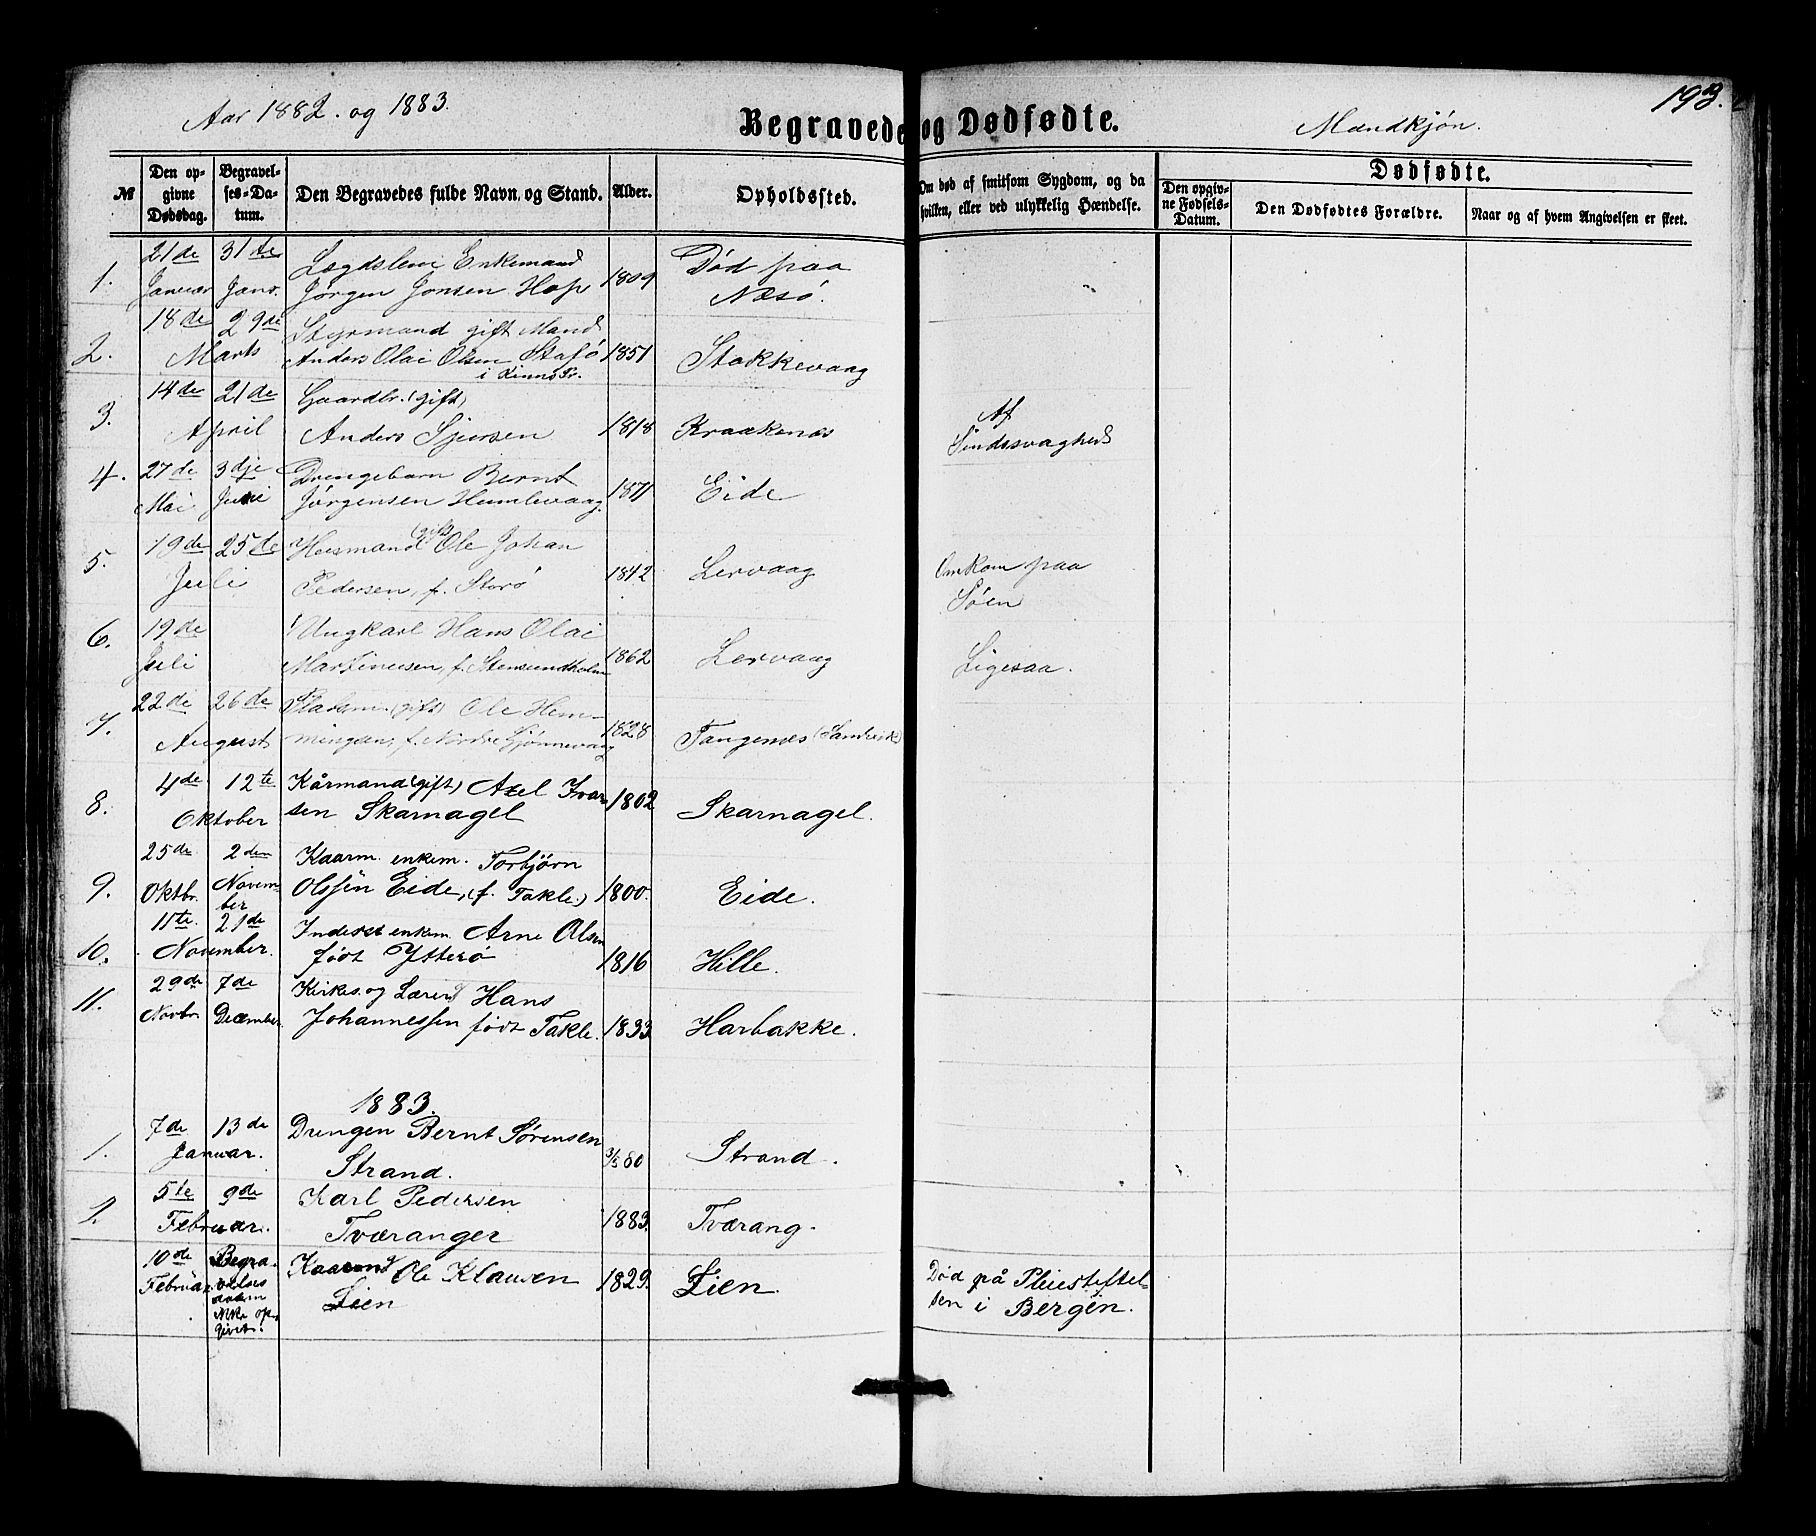 Aar 1882. og 1883.
Begravede og Dødfødte.
Mandkjøn.
193.
№
Den opgivne Dødsdag.
Begravelses-Datum.
Den Begravedes fulde Navn og Stand.
Alder.
Opholdssted.
Om død af smitsom Sygdom, og da
hvilken, eller ved ulykkelig Hændelse.
Dødfødte.
Den opgivne Fødsels-Datum.
Den Dødfødtes Forældre.
Naar og af hvem Angivelsen er skeet.
21de 31te Lægdslem Enkemand Død paa
1. Januar Janr. Jørgen Jonsen Hop 1809 Næsø.
18de 29de Styrmand gift Mand
2. Marts Anders Olai Olsen Stafø 1851 Stokkevaag
i Kinns Pr.
14de 21de Gaardbr. (gift) Af
3. April Anders Sjursen 1818 Kraakenæs Sindssvaghed
4. 27de 3dje Drengebarn Bernt
Mai Juni Jørgensen Humlevaag 1871 Eide
19de 25te Huusmand (gift) Ole Johan Omkom paa
5. Juli Pedersen, f. Storø 1842 Lervaag Søen
6. 19de Ungkarl Hans Olai
Juli Martinusen, f. Stensundholm 1862 Lervaag Ligesaa.
22de 26de Pladsm. (gift) Ole Hem-
7. August mingsen, f. Nordre Gjønnevaag 1828 Tangenæs (Sandvik)
4de 12te Kårmand (gift) Axel Ivar-
8. Oktober sen Skarnagel 1802 Skarnagel.
25de 2den Kaarm. enkem. Torbjørn
9. Oktbr. November Olssen Eide, (f. Takle.) 1800. Eide.
11te 21de Inderst enkem. Arne Olsen
10. November. født Ytterø 1816 Hille.
29de 7de Kirkes. og Lærer Hans
11. Novbr. December Johannessen født Takle. 1833 Harbakke.
1883.
7de 13de Drengen Bernt Sørensen
1. Januar. Strand. 3/5 80 Strand.
5te 9de Karl Pedersen
2. Februar. Tværanger 1883. Tværang.
10de Begra- Kaarmd Ole Klausen Død på Pleiestiftel-
Februar. velses Lien 1829. Lien. sen i Bergen.
datum
ikke op-
givet.